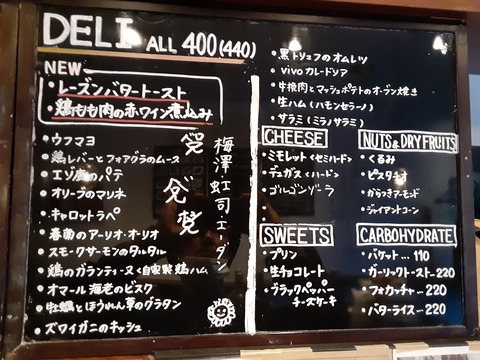 DELI ALL 400(440)
NEW
・レーズンバタートースト
・鶏もも肉の赤ワイン煮込み
・ウフマヨ
・鶏レバーとフォアグラのムース
・エゾ鹿のパテ
・オリーブのマリネ
・キャロットラペ
・春菊のアーリオ・オーリオ
・スモークサーモンのタルタル
・鶏のガランティーヌ<自家製鶏ハム
・オマール海老のビスク
・牡蠣とほうれん草のグラタン
・ズワイガニのキッシュ
梅澤・虹司・エーダン
・黒トリュフのオムレツ
・vivoカレードリア
・牛挽肉とマッシュポテトのオーブン焼き
・生ハム(ハモンセラーノ)
・サラミ(ミラノサラミ)
CHEESE
・ミモレット<セミハード>
・デュガス<ハード>
・ゴルゴンゾーラ
NUTS&DRYFRUITS
・くるみ
・ピスタチオ
・からつきアーモンド
・ジャイアントコーン
SWEETS
・プリン
・生チョコレート
・ブラックペッパーチーズケーキ
CARBOHYDRATE
・バゲット…110
・ガーリックトースト…220
・フォカッチャ…220
・バターライス…220